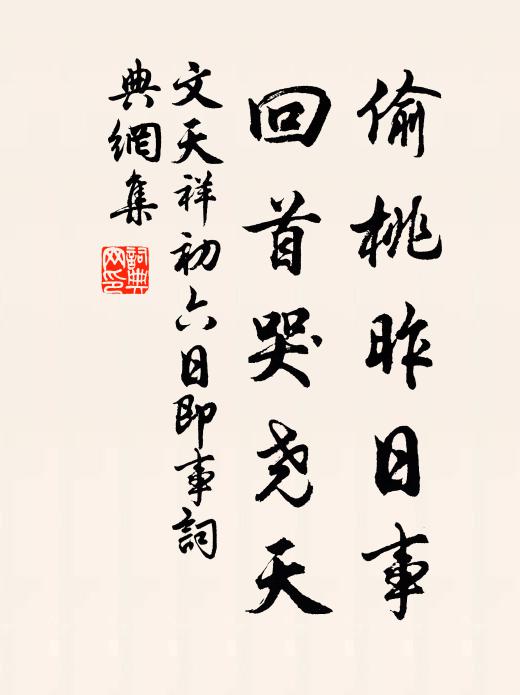 偷桃昨日事
回首哭尧天
文天祥初六日即事詞
典網集
詞典
网印